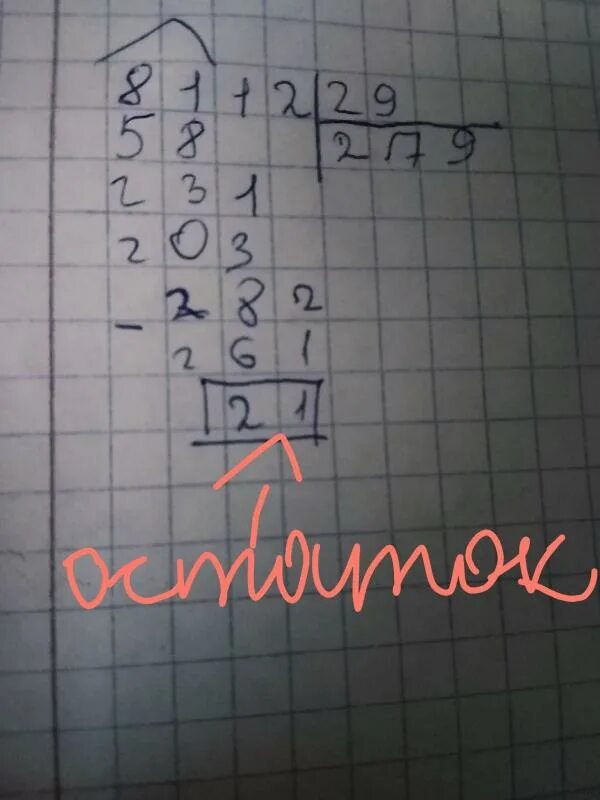 8112|29
58 |279
231
203
- 282
261
21
остаток